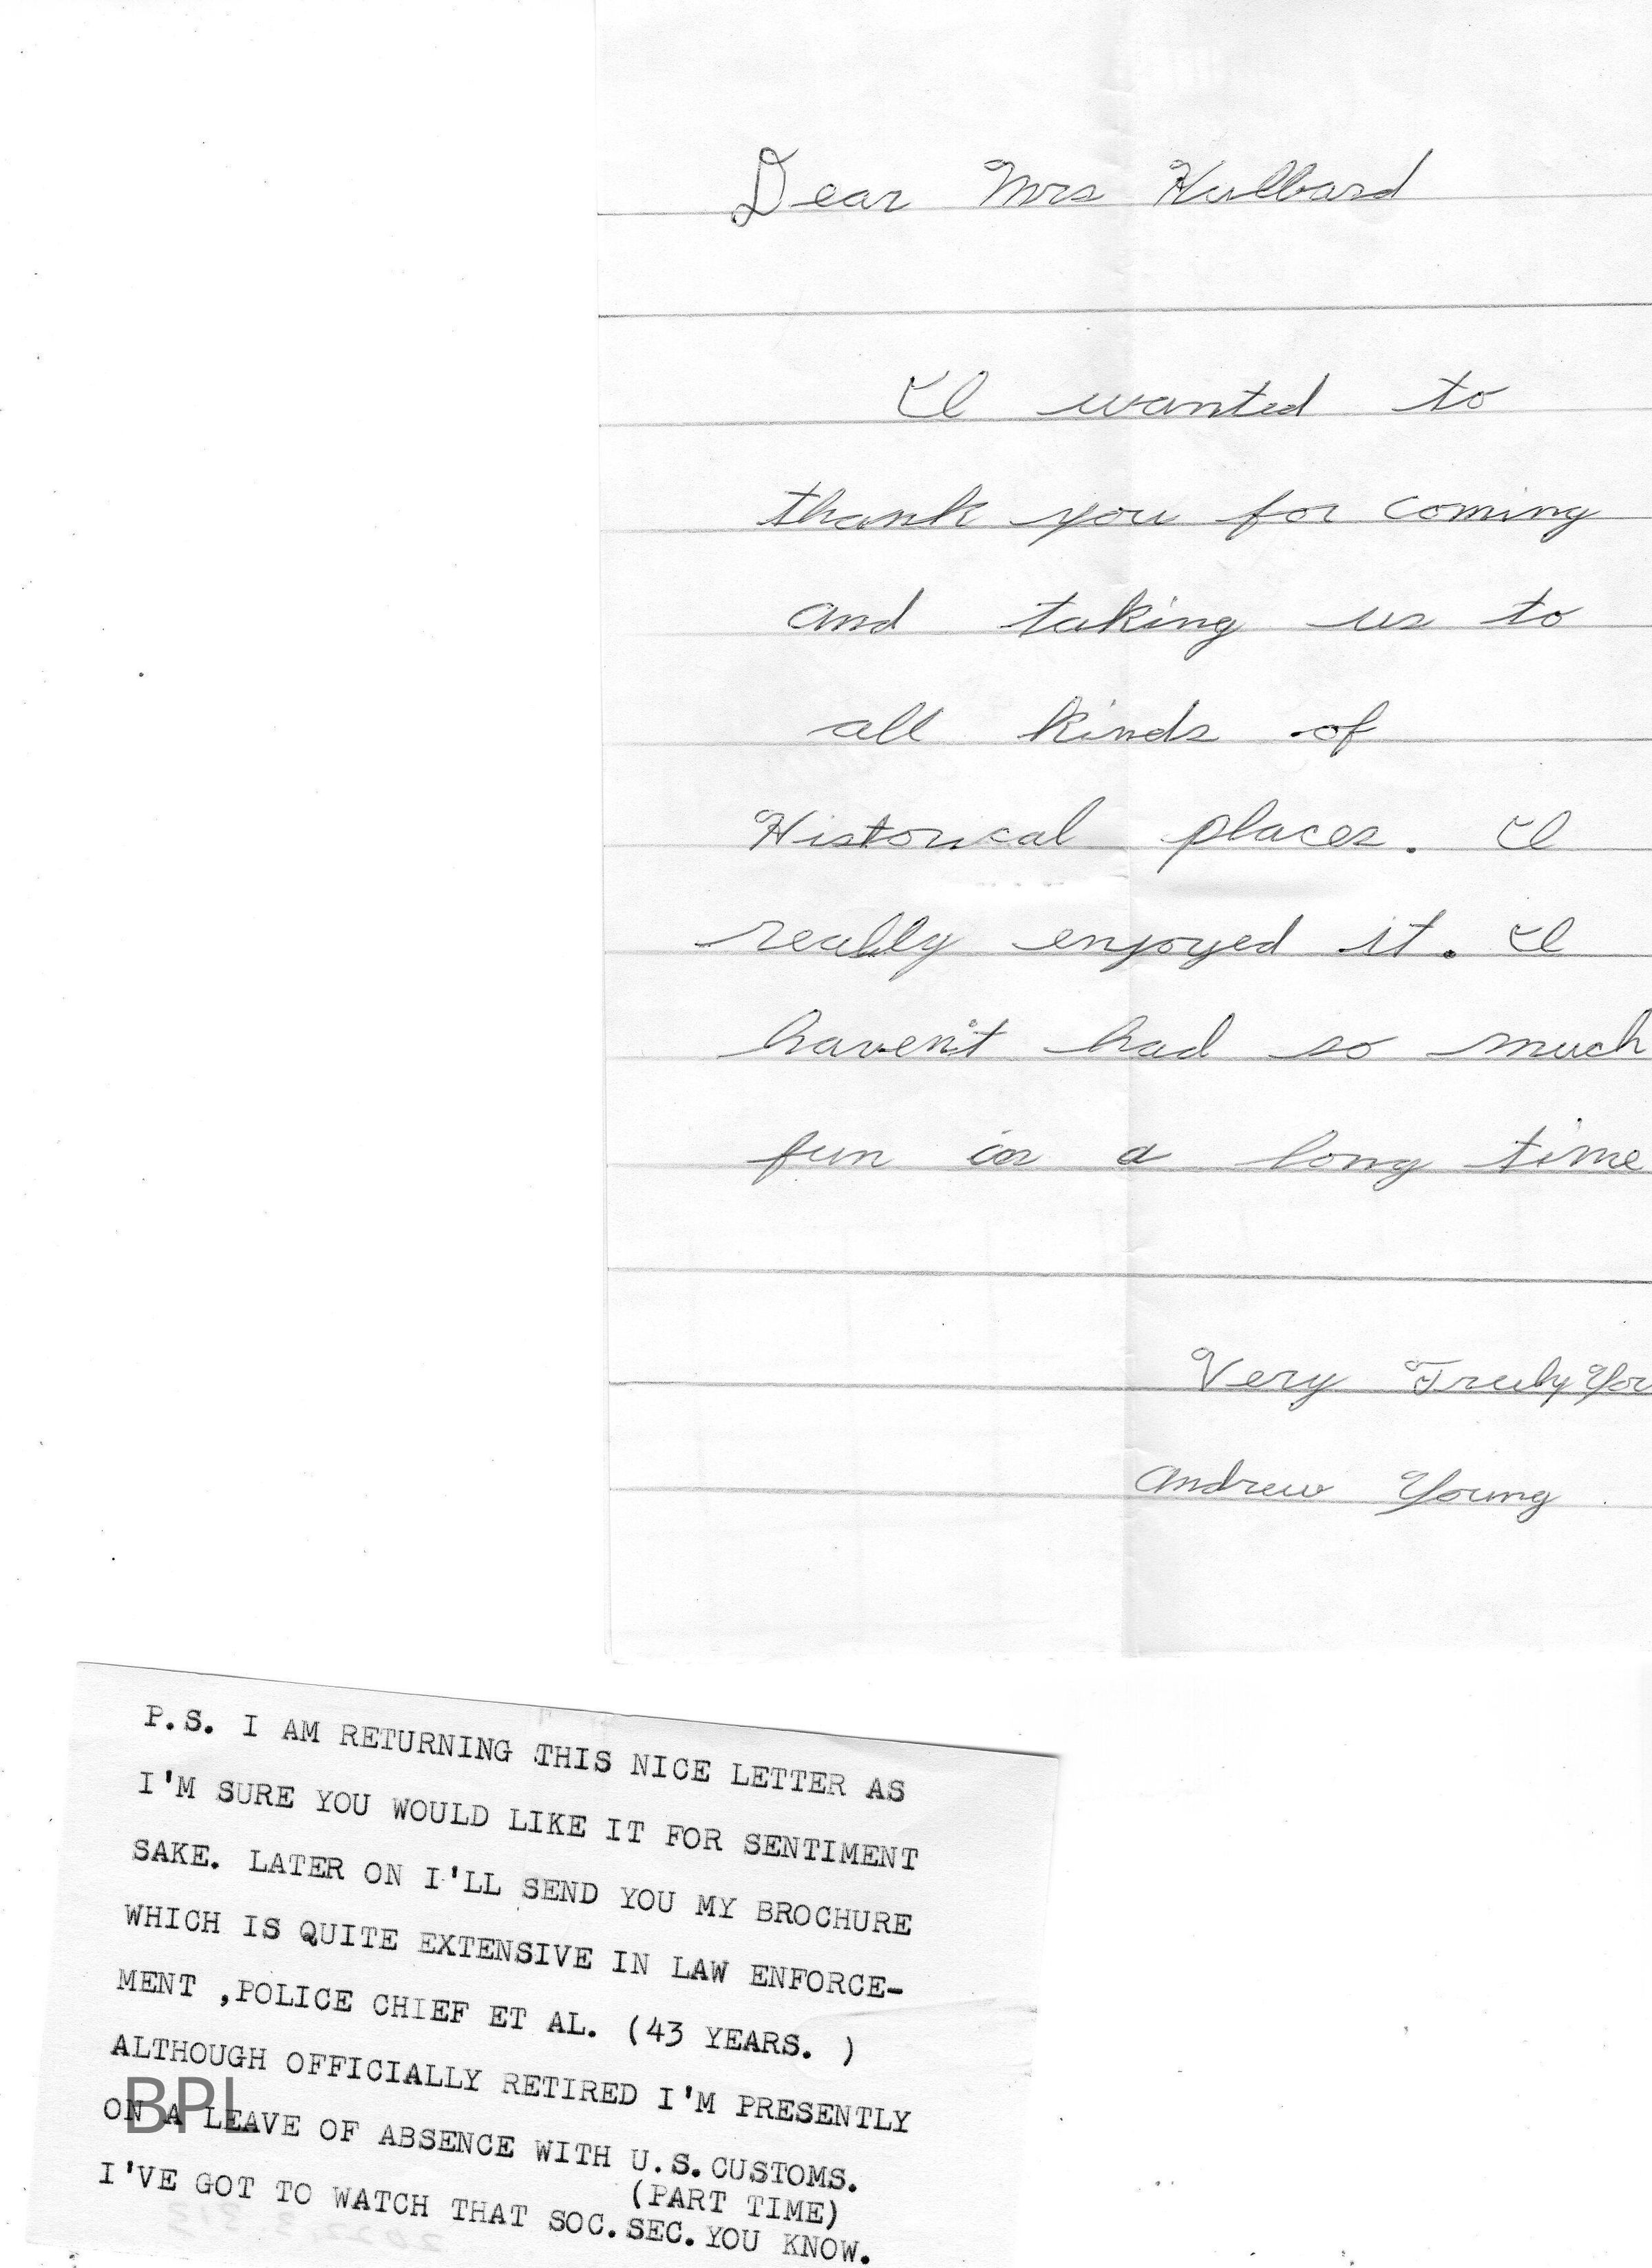 Dear Mrs Hullbard
I wanted to
thank you for coming
and taking us to
all kinds of
Historical places. I
really enjoyed it. I
haven't had so much
fun in a long time
Very Truly You
Andrew Young
P.S. I AM RETURNING THIS NICE LETTER AS
I'M SURE YOU WOULD LIKE IT FOR SENTIMENT
SAKE. LATER ON I'LL SEND YOU MY BROCHURE
WHICH IS QUITE EXTENSIVE IN LAW ENFORCE-
MENT ,POLICE CHIEF ET AL. (43 YEARS. )
ALTHOUGH OFFICIALLY RETIRED I'M PRESENTLY
ON A LEAVE OF ABSENCE WITH U.S.CUSTOMS.
(PART TIME)
I'VE GOT TO WATCH THAT SOC.SEC.YOU KNOW.
BPL